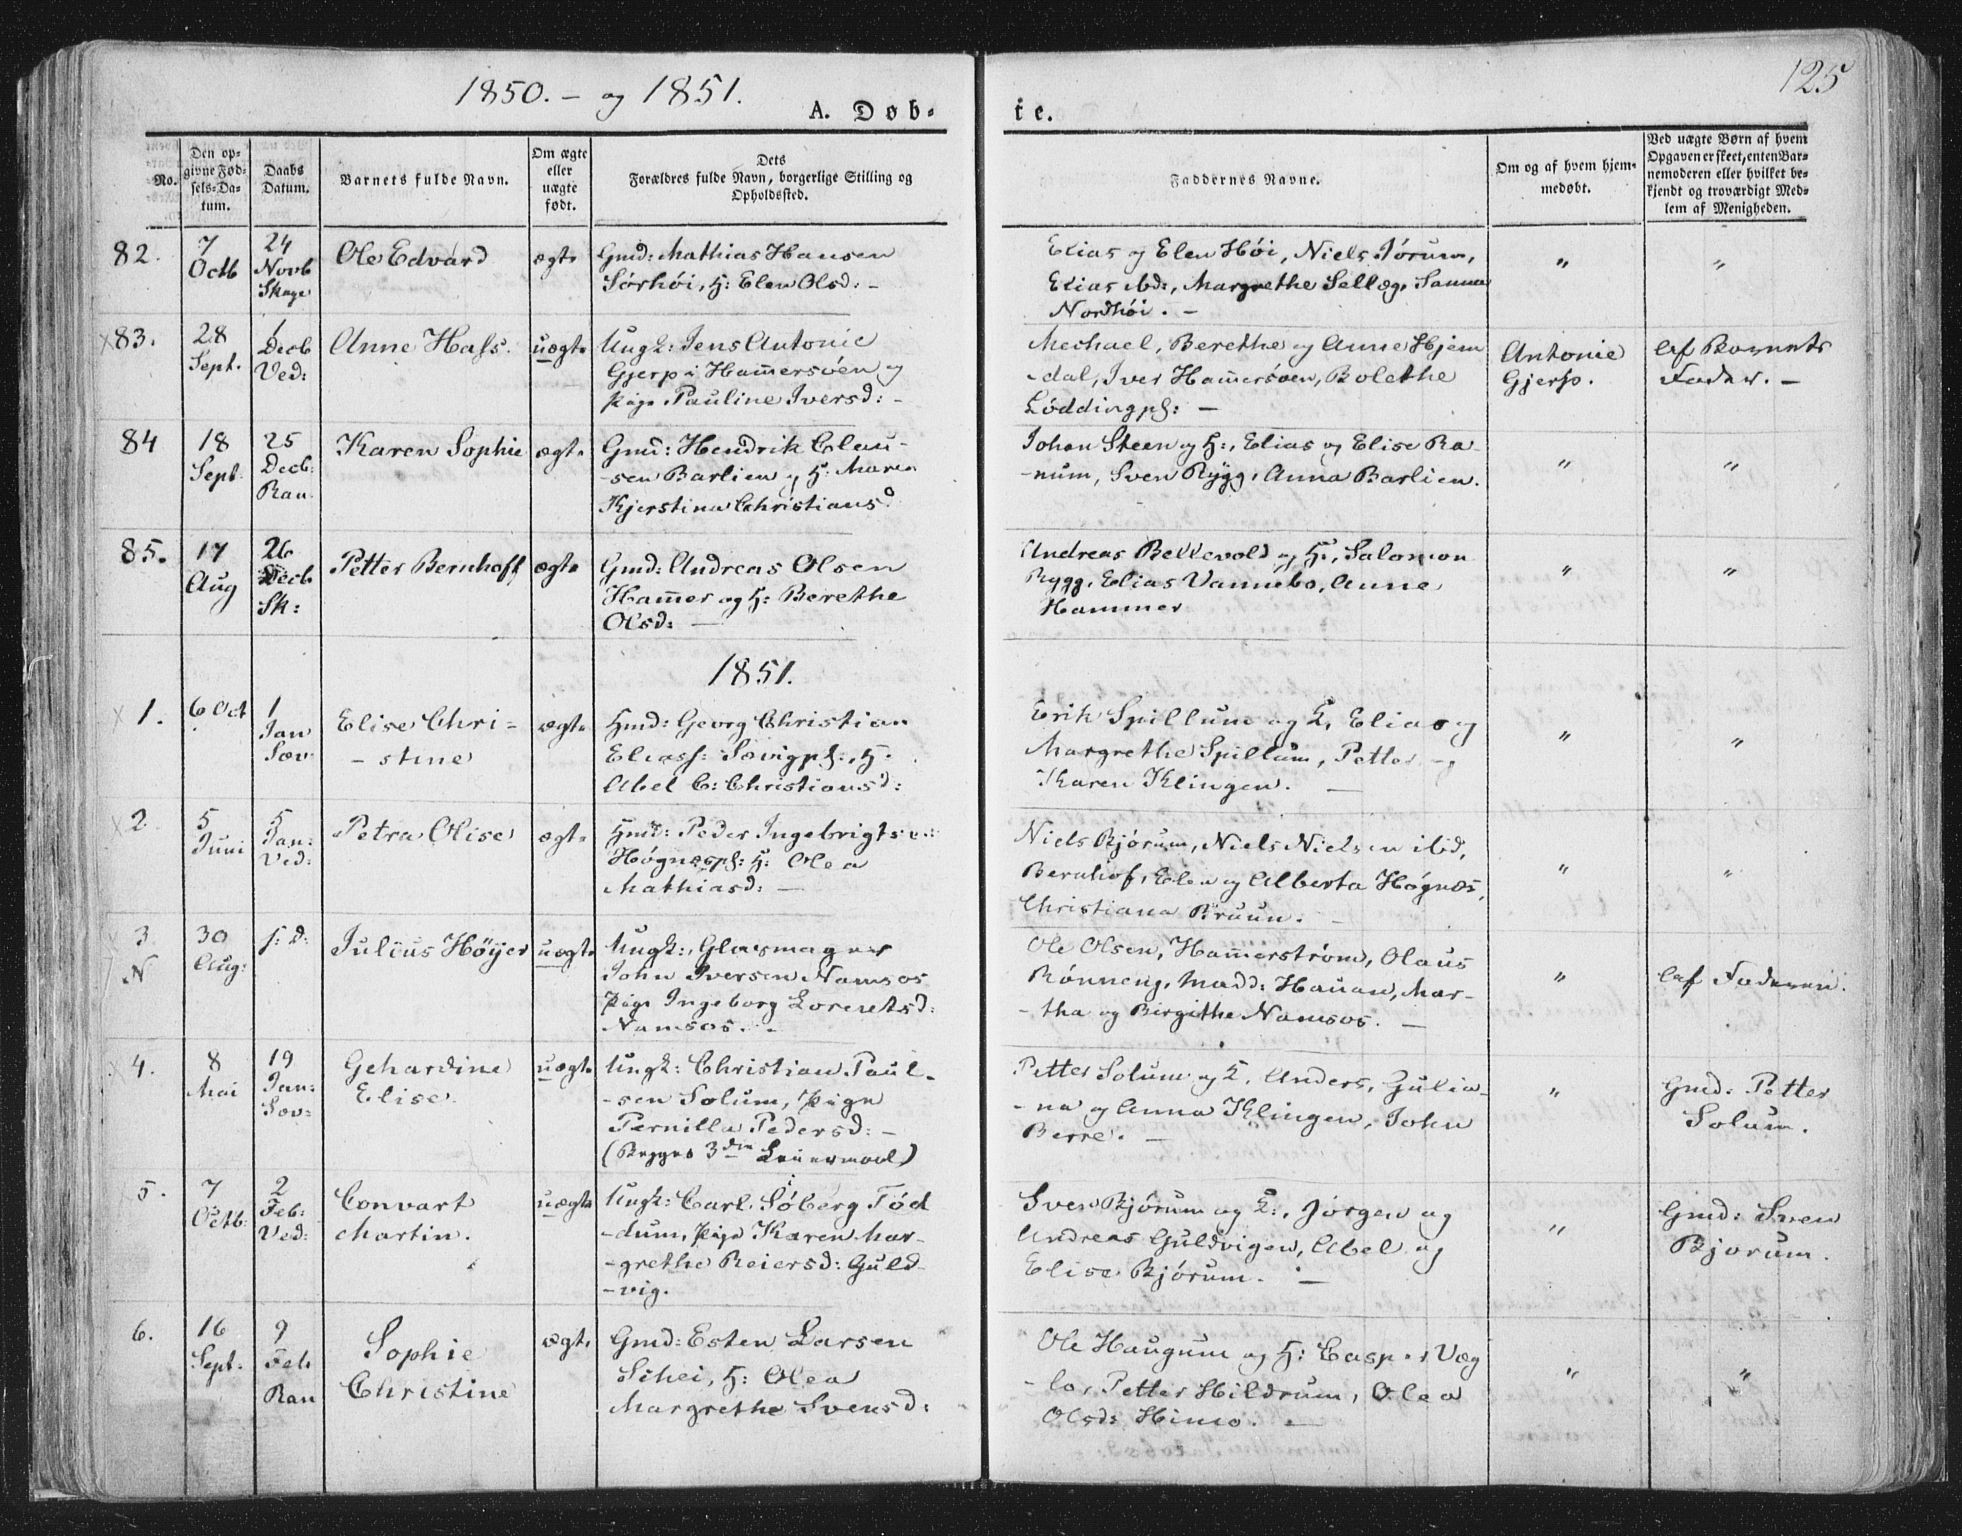 1850. – og 1851.
125
A. Døb-
te.
No.
Den op-
givne Fød-
sels-Da-
tum.
Daabs
Datum.
Barnets fulde Navn.
Om ægte
eller
uægte
født.
Dets
Forældres fulde Navn, borgerlige Stilling og
Opholdssted.
Faddernes Navne.
Om og af hvem hjem-
medøbt.
Ved uægte Børn af hvem
Opgaven er skeet, enten Bar-
nemoderen eller hvilket be-
kjendt og troværdigt Med-
lem af Menigheden.
82.
7
Octb
24
Novb
Skage
Ole Edvard
ægte
Gmd: Mathias Hansen
Sørhøi, H: Elen Olsd: –
Elias og Elen Høi, Niels Jørum,
Elias ibd:, Margrethe Sellæg, Sanna
Nordhøi. –
"
"
×83.
28
Sept.
1
Decb
Ved:
Anne Hass.
uægte
Ungk: Jens Antonie
Gjerp i Ham̄ersøen og
Pige Pauline Iversd: –
Mechael, Berethe og Anne Hjem
-dal, Iver Ham̄ersøen, Bolethe
Løddingpl: –
Antonie
Gjerp.
Af Barnets
Fader. –
84
18
Sept.
25
Decb:
Ran.
Karen Sophie
ægte
Gmd: Hendrik Clau-
-sen Barlien og H: Maren
Kjerstina Christiansd
Johan Steen og H:, Elias og Elise Ra-
-num, Sven Rygg, Anna Barlien.
"
"
85.
17
Aug
26
Decb
Sk:
Petter Bernhoff
ægte
Gmd: Andreas Olsen
Ham̄er og H: Berethe
Olsd: –
Andreas Bellevold og H:, Salomon
Rygg, Elias Vannebo, Anne
Hammer
"
"
1851.
× 1.
6 Oct
1
Jan
Sæv.
Elise Chri-
- stine
ægte
Hmd: Georg Christian
Eliass: Sævigpl:, H:
Abel C: Christiansd:
Erik Spillum og K, Elias og
Margrethe Spillum, Petter og
Karen Klingen. –
"
"
× 2.
5
Juni
5
Jan:
Ved:
Petra Olise
ægte
Hmd: Peder Ingebrigts..:
Høgnæspl: H: Olea
Mathiasd: –
Niels Bjørum, Niels Nielsen ibd,
Bernhof, Elen og Alberta Høgnæs,
Christiana Bruun. –
"
"
3.
N
30
Aug:
s: d:
Julius Höyer
uægte
Ungk:, Glasmager
John Iversen Namsos
Pige Ingeborg Lorentsd:
Namsos. –
Ole Olsen, Ham̄erstrøm, Olaus
Rønneng, Mad: Hauan, Mar-
- tha og Birgithe Namsos. –
"
Af Faderen.
× 4.
8
Mai
19
Jan:
Sæv:
Gehardine
Elise
uægte
Ungk: Christian Paul-
-sen Solum, Pige
Pernilla Pedersd: –
(Begges 3die Leiermaal)
Petter Solum og K. Anders, Julia-
- na og Anna Klingen, John
Berre. –
"
Gmd: Petter
Solum.
5.
7
Octb:
2
Feb:
Ved:
Convart
Martin.
uægte
Ungk: Carl Søberg Fød
-dum, Pige Karen Mar-
-grethe Reiersd: Guld
-vig.
Sven Bjørum og K:, Jørgen og
Andreas Guldvigen, Abel og
Elise Bjørum. –
"
Gmd: Sven
Bjorum.
6.
16
Sept:
9
Feb
Ran
Sophie
Christine
ægte
Gmd: Esten Larsen
Schei, H: Olea
Margrethe Svensd:
Ole Haugum og H: Casper Væg
-lo, Petter Hildrum, Olea
Olsd: Himo. –
"
"